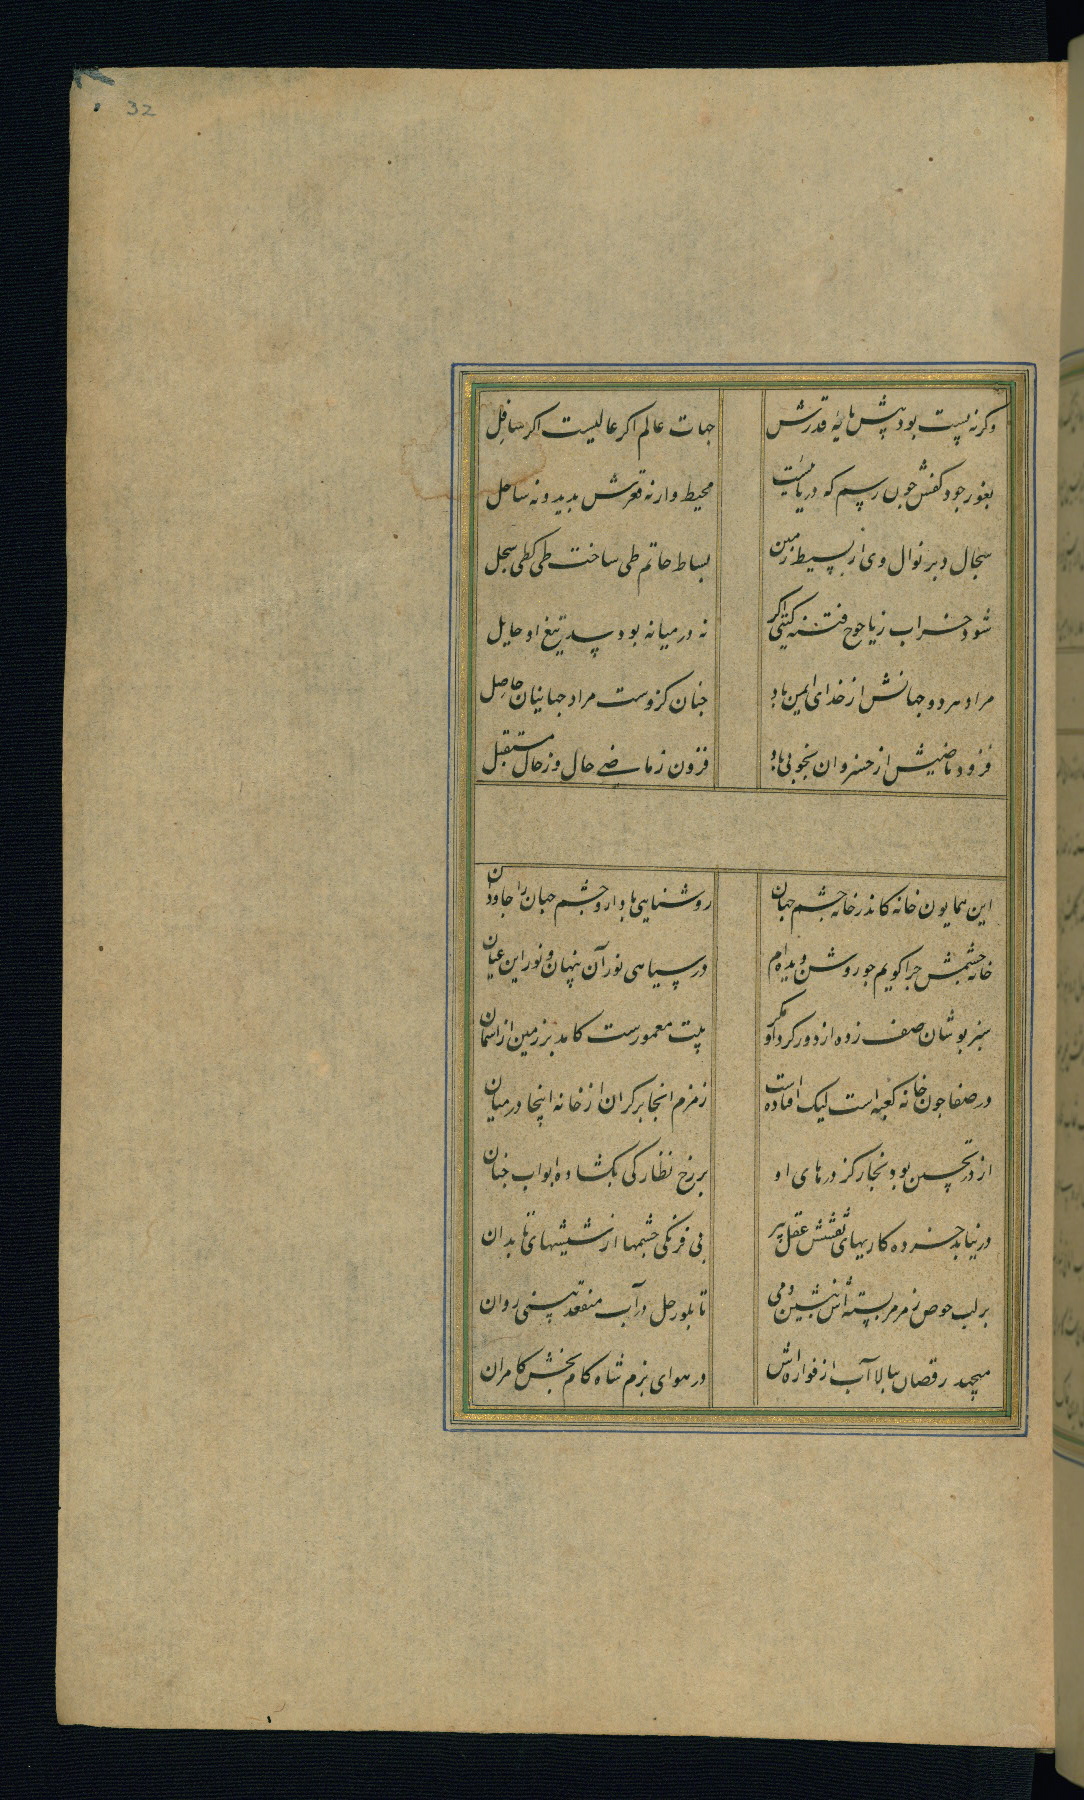 32
وکرنه پست بود پیش پایهٔ قدرش جهات عالم اکر عالیست اکر سافل
بغور جود کفش چون رسم که دریائیست محیط وار نه قعرش پدید و نه ساحل
سجال وبر نوال وی از بسیط زمین بساط حاتم طی ساخت طی کطی سجل
شود خراب ز یاجوج فتنه کیتی اکر نه در میانه بود سد تیغ او حایل
مراد هر دو جهانش از خدای ایمن باد جنان کزوست مراد جهانیان حاصل
فزود ماضیش از خسروان بخوبی باد فزون ز ماضی حال وز حال مستقبل
این همایون خانه کاندر خانه چشم جهان روشنایی باد ار و چشم جهان را جاودان
خانه چشمش چرا کویم چو روشن دیده‌ام در سیاهی نور آن پنهان و نور این عیان
سبز پوشان صف زده از دور کرد او مکر بیت معمورست کامد بر زمین از اسمان
در صفا چون خانه کعبه است لیک افتاده است زمزم انجا بر کران از خانه اینجا در میان
از در تحسین بود نجار کز درهای او بر رخ نظارکی بکشاده ابواب جنان
در نیابد خرده کاریهای نقشش عقل پیر بی فرنکی چشمها از شیشهای تابدان
بر لب حوض ز مرمر بسته‌اش بنشین دمی تا بلور حل در آب منعقد بینی روان
میجهد رقصان ببالا آب از فواره‌اش در هوای بزم شاه کام بخش کامران